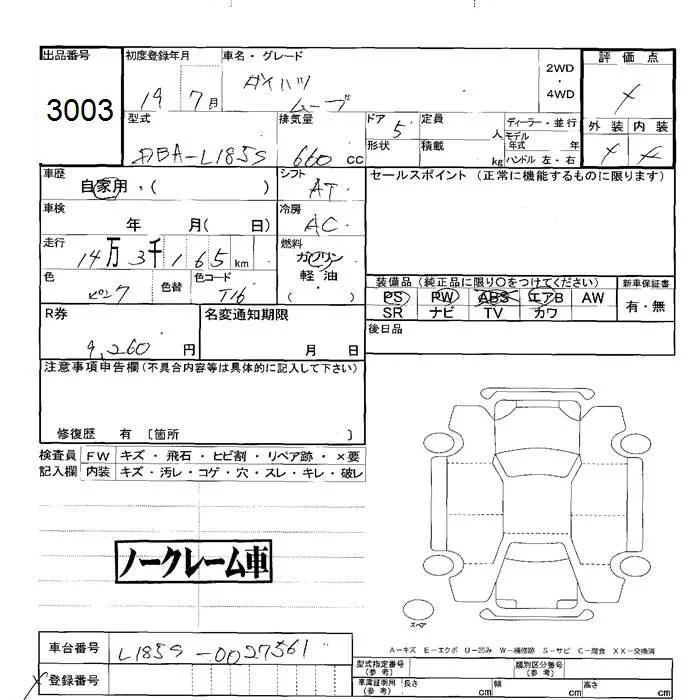 出品番号 初度登録年月 車名・グレード 2WD・4WD 評価点
3003 19 7月 ダイハツ ムーブ ×
型式 排気量 ドア 定員 人 ディーラー・並行 外装 内装
DBA-L185S 660 cc 5 モデル年式 年 × ×
形状 積載 kg ハンドル 左・右
車歴 シフト セールスポイント (正常に機能するものに限ります)
自家用・( ) AT
車検 冷房
年 月( 日) AC
走行 燃料
14万 3千 165 km ガソリン
色 色替 色コード 軽油
ピンク T16 ( )
装備品 (純正品に限り〇をつけてください) 新車保証書
PS PW ABS エアB AW 有・無
SR ナビ TV カワ
R券 名変通知期限 後日品
9,260 円 月 日
注意事項申告欄(不具合内容等は具体的に記入して下さい)
修復歴 有 〔箇所 〕
検査員 FW キズ・飛石・ヒビ割・リペア跡・×要
記入欄 内装 キズ・汚レ・コゲ・穴・スレ・キレ・破レ
ノークレーム車
スペア
A-キズ E-エクボ U-凹み W-補修跡 S-サビ C-腐食 XX-交換済
車台番号 L185S-0027561
登録番号
型式指定番号(参考) 類別区分番号(参考)
車庫証明用(参考) 長さ cm 幅 cm 高さ cm